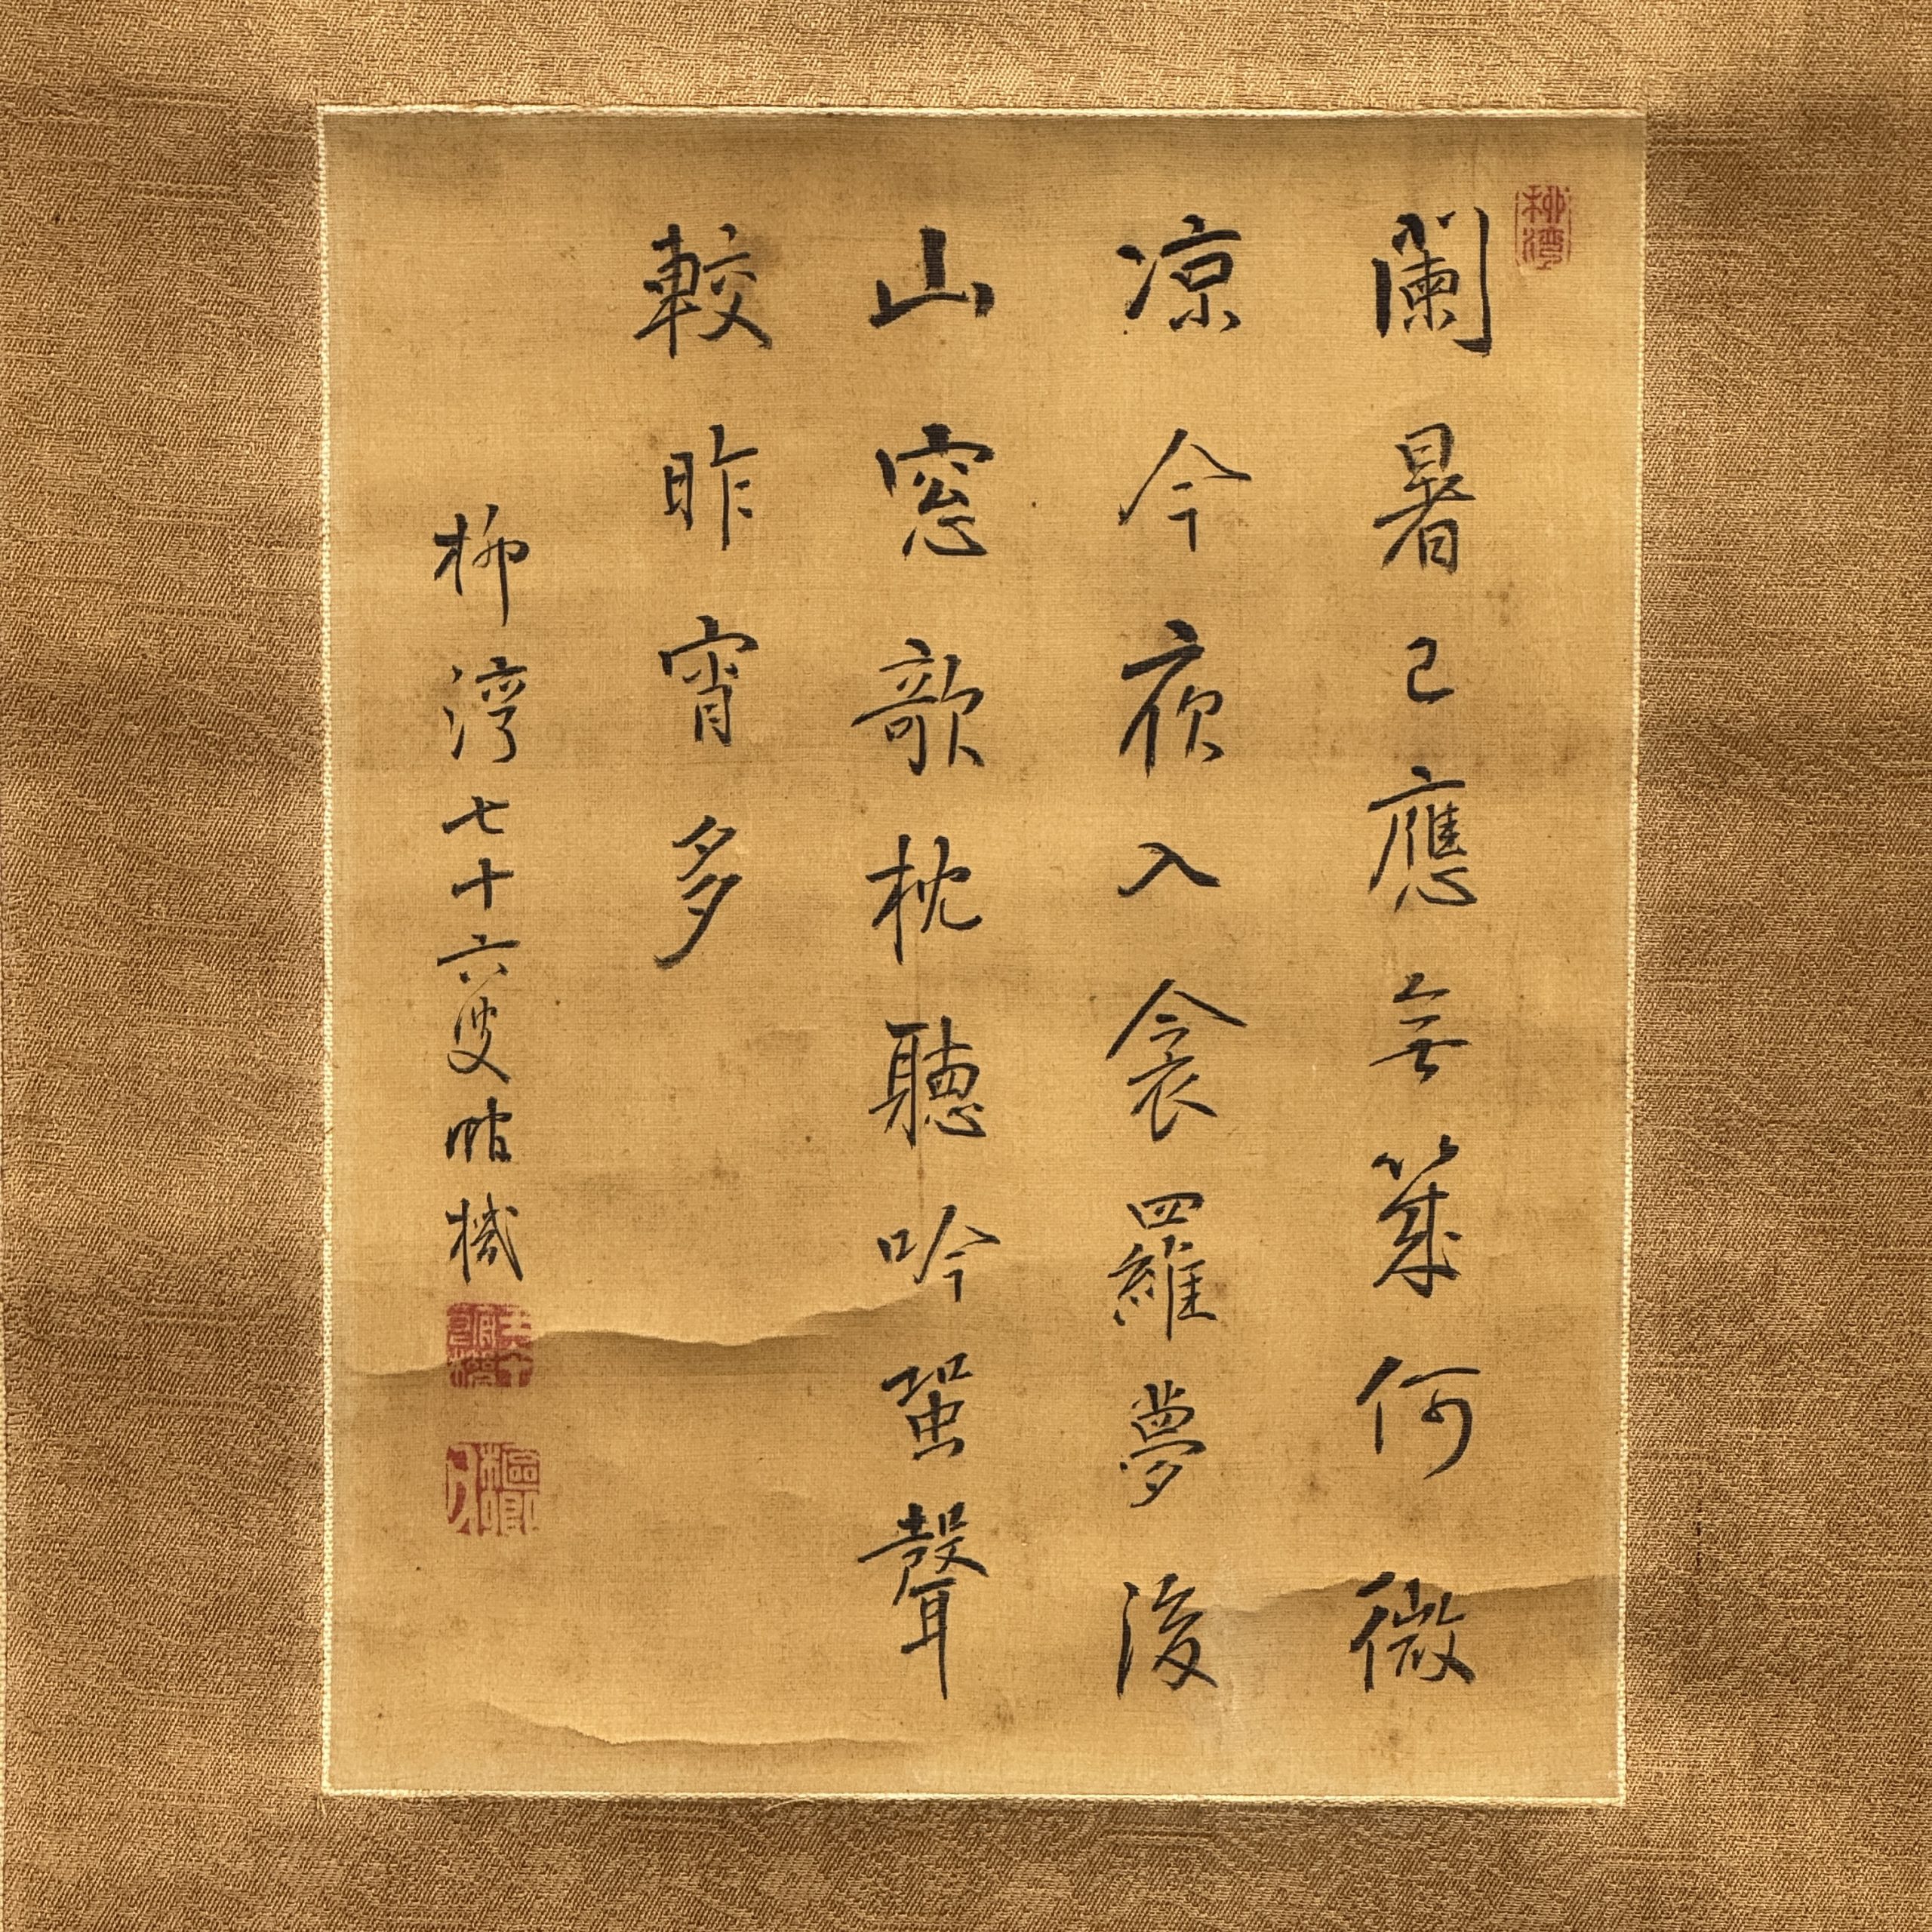 柳湾
闌暑已應無幾何微
凉今夜入衾羅夢後
山窓欹枕聽吟蛩聲
較昨宵多
柳湾七十六叟館機